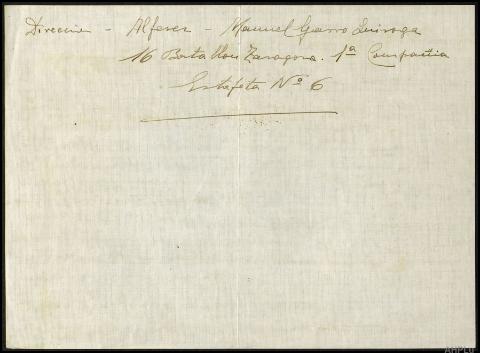 Direccion - Alferez - Manuel Garro Quiroga
16 Batallon Zaragoza. 1ª Compañia
Estafeta Nº 6
AHPLU